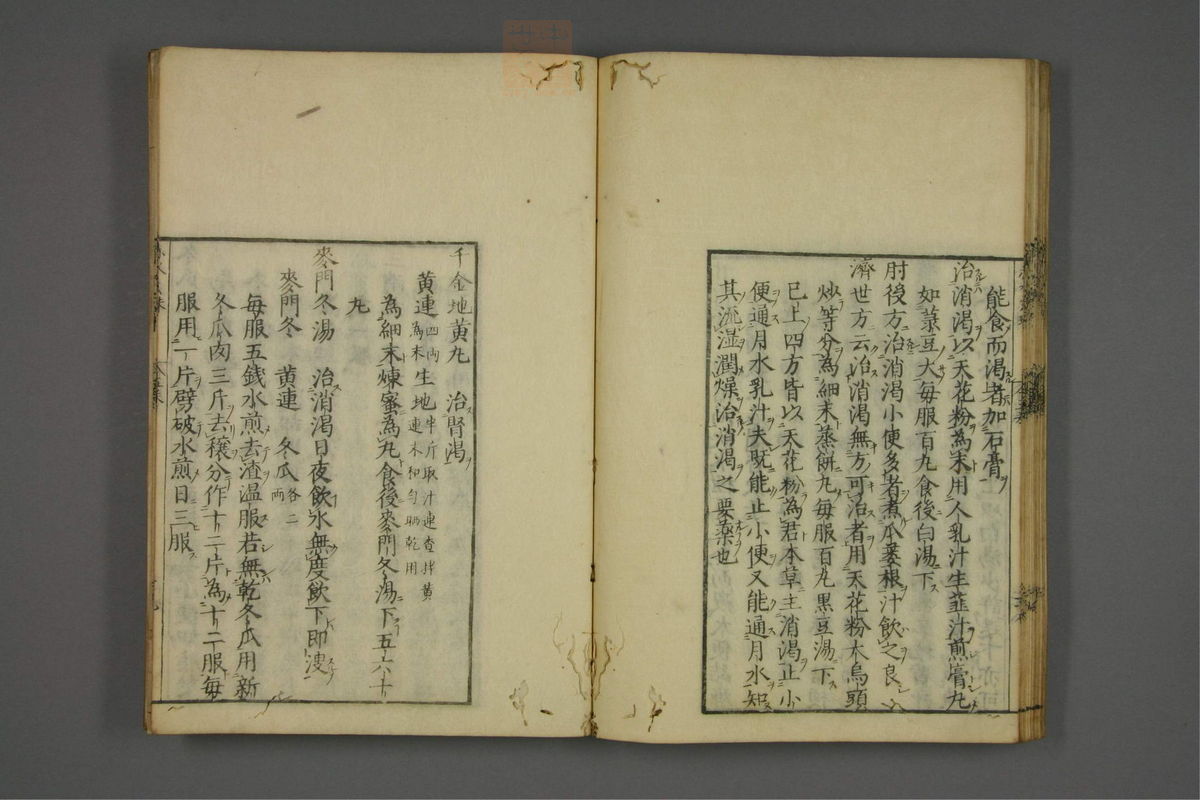 能食而渇者加石膏
治消渇以天花粉為末用人乳汁生韮汁煎膏丸
如菉豆大毎服百丸食後白湯下
肘後方治消渇小便多者煮瓜蔞根汁飲之良
濟世方云治消渇無方可治者用天花粉大烏頭
炒等分為細末蒸餅丸毎服百丸黒豆湯下
已上四方皆以天花粉為君本草主消渇止小
便通月水乳汁夫既能止小便又能通月水知
其流湿潤燥治消渇之要藥也
千金地黄丸 治腎渇
黄連四両為末生地半斤取汁連査拌黄連末和匀晒乾用
為細末煉蜜為丸食後麥門冬湯下五六十
丸
麥門冬湯 治消渇日夜飲水無度飲下即溲
麥門冬 黄連 冬瓜各二両
毎服五錢水煎去渣温服若無乾冬瓜用新
冬瓜肉三斤去穰分作十二片為十二服毎
服用一片劈破水煎日三服